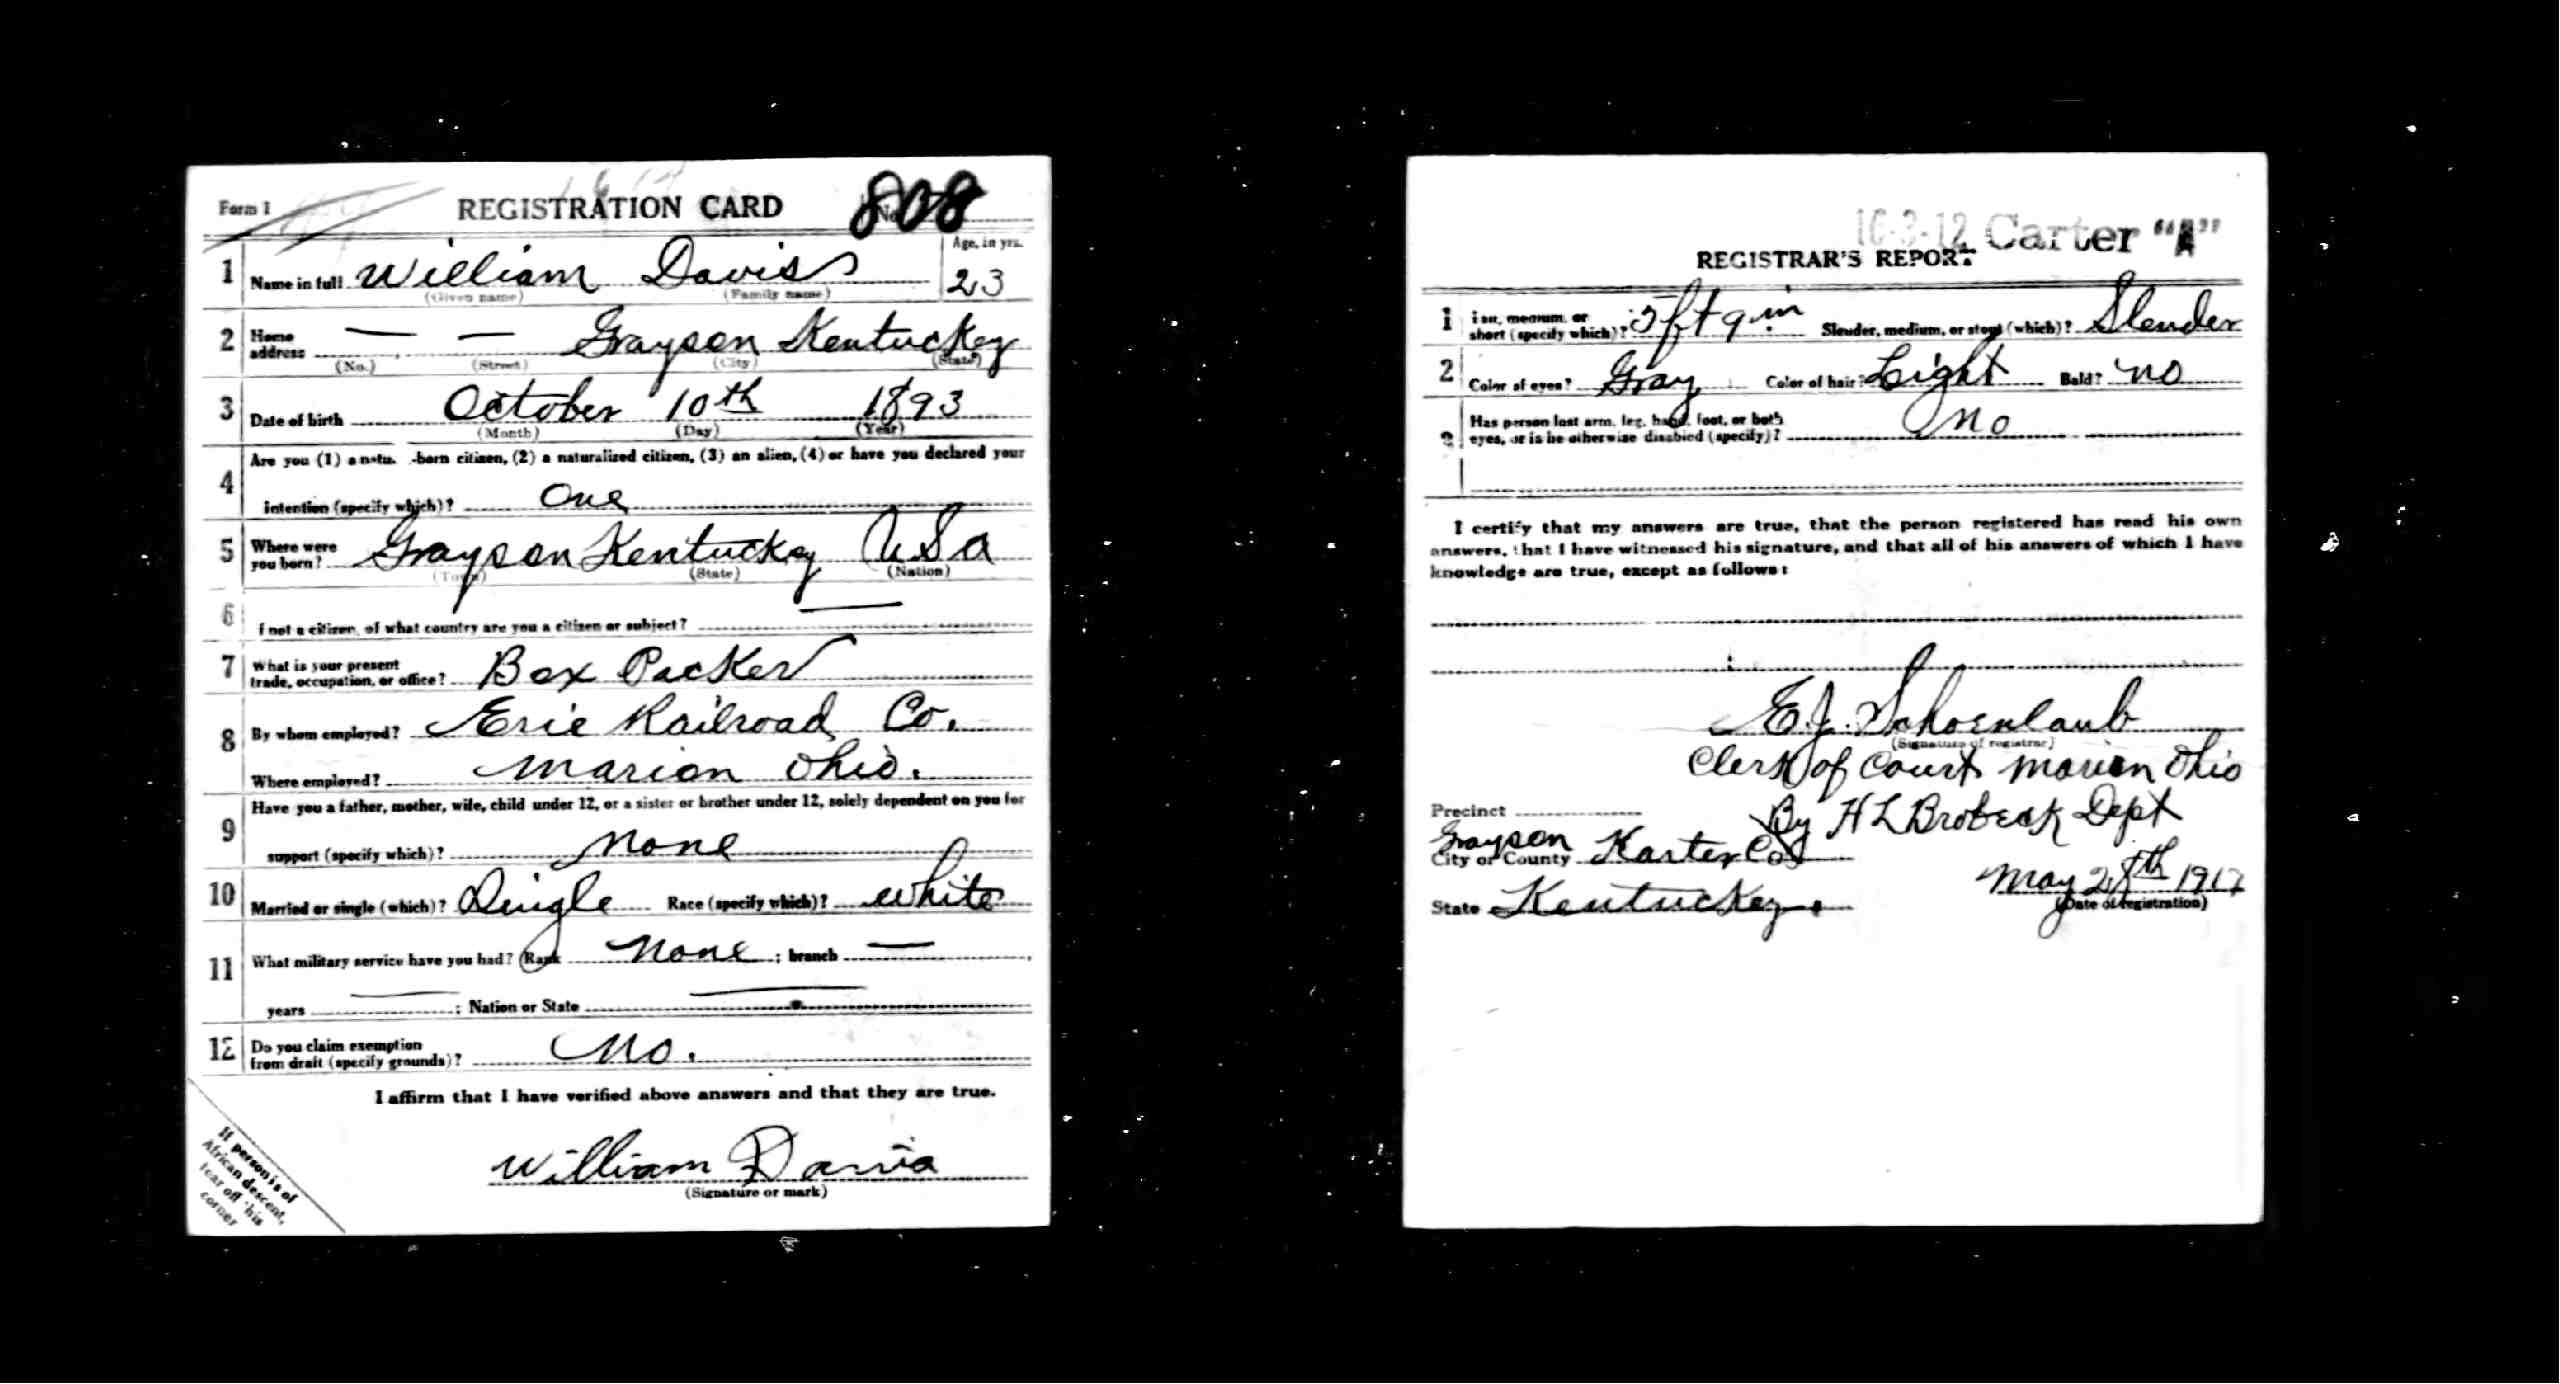 Form 1 REGISTRATION CARD No. 808
1 Name in full William Davis Age, in yrs. 23
(Given name) (Family name)
2 Home address — — Grayson Kentucky
(No.) (Street) (City) (State)
3 Date of birth October 10th 1893
(Month) (Day) (Year)
4 Are you (1) a natu. -born citizen, (2) a naturalized citizen, (3) an alien, (4) or have you declared your
intention (specify which)? One
5 Where were you born? Grayson Kentucky USA
(Town) (State) (Nation)
6 If not a citizen, of what country are you a citizen or subject? —
7 What is your present trade, occupation, or office? Box Packer
8 By whom employed? Erie Railroad Co.
Where employed? Marion Ohio.
9 Have you a father, mother, wife, child under 12, or a sister or brother under 12, solely dependent on you for
support (specify which)? None
10 Married or single (which)? Single Race (specify which)? White
11 What military service have you had? Rank None ; branch —
years — ; Nation or State —
12 Do you claim exemption from draft (specify grounds)? No.
I affirm that I have verified above answers and that they are true.
William Davis
(Signature or mark)
If person is of
African descent,
tear off this
corner
16-3-12 Carter "A"
REGISTRAR'S REPORT
1 Tall, medium, or short (specify which)? 5 ft 9 in. Slender, medium, or stout (which)? Slender
2 Color of eyes? Gray Color of hair? Light Bald? No
3 Has person lost arm, leg, hand, foot, or both
eyes, or is he otherwise disabled (specify)? No
I certify that my answers are true, that the person registered has read his own
answers, that I have witnessed his signature, and that all of his answers of which I have
knowledge are true, except as follows:
E.J. Schoenlaub
(Signature of registrar)
Clerk of Court Marion Ohio
Precinct By H L Brobeck Dept
Grayson
City or County Karter Co
State Kentucky. May 28th 1917
(Date of registration)